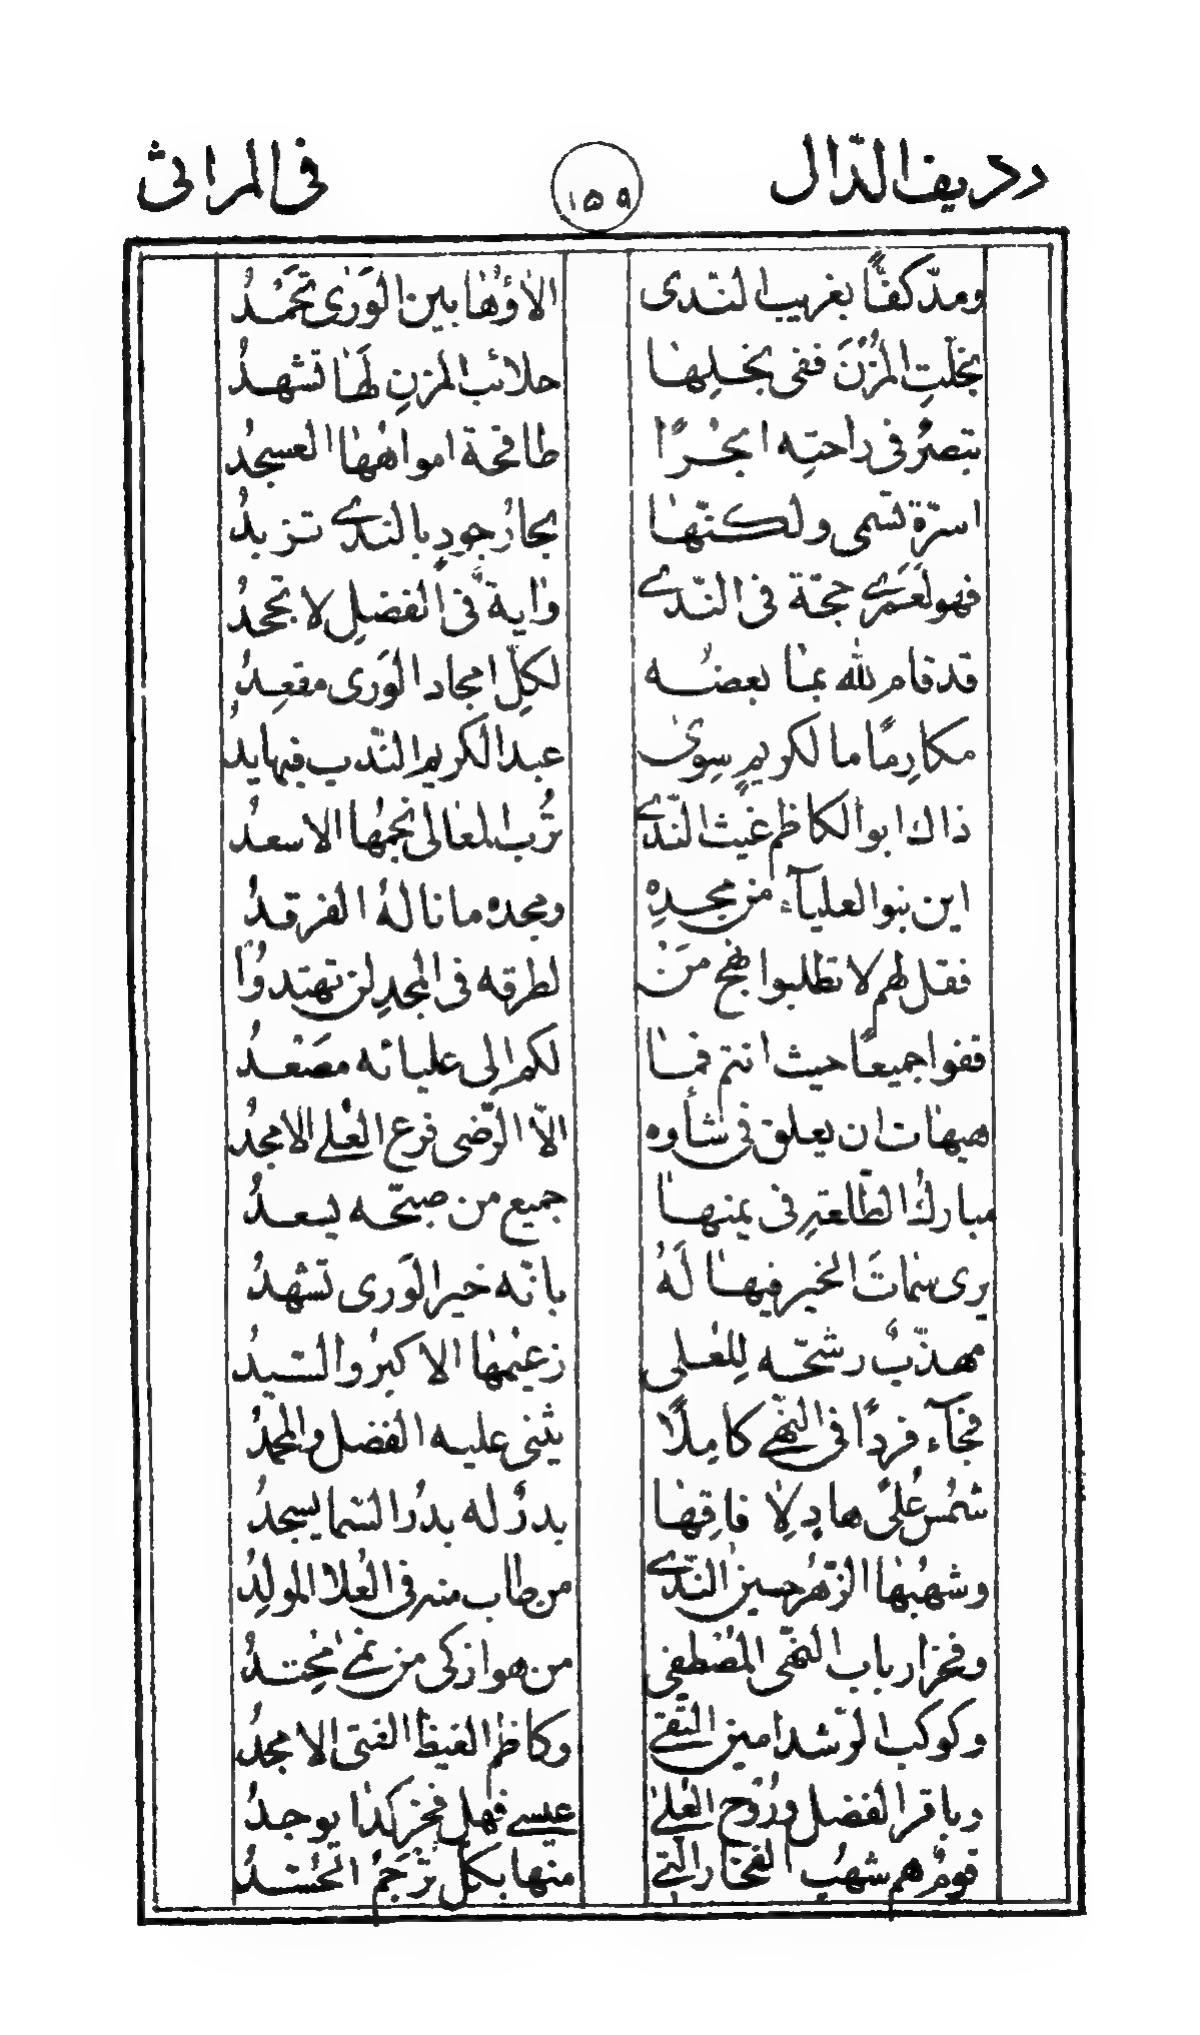 ردیف الدّال ١٥٩ فی المراثی
ومدّ كفًّا بغريب النّدى الاؤُها بين الوَرٰى تَحمَدُ
بخلّتِ المُزْنَ ففى بخلها حلائب المزنِ لَهَا تشهدُ
تبصرُ فى راحتِه ابحُرًا طافحة امواهُها العسجدُ
اسرّة تسمى ولكنّها بحارُ جودٍ بالندى تزبدُ
فهو لَعَمرى حجّة فى النّدى وٰاية فى الفضلِ لا تجحدُ
قد قام لله بما بعضُه لكلّ امجاد الوَرى مقعِدُ
مكارِمًا ما لكريمٍ سِوىٰ عبد الكريم النّدب فيها يدُ
ذاك ابو الكاظم غيث النّدى تُرب المعالى نجمُها الاسعدُ
اين بنو العلياء من مجدِهِ ومجده ما نالهُ الفرقدُ
فقل لهم لا تطلبوا نهج مَنْ لطرقه فى المجدِ لن تهتدُوا
قفوا جميعًا حيث انتم فما لكم الى عليائه مصَعْدُ
هيهات ان يعلق فى شأوه الّا الرّضى فرع العُلى الامجدُ
مباركُ الطّالعة فى يمنها جميع من صبّحه يسعدُ
يرى سماتَ الخير فيها لَهُ بانّه خير الوَرى تشهدُ
مهذّبٌ رشّحه لِلعُلى زعيمها الاكبرُ والسّيدُ
فجآء فردًا فى النّهى كامِلًا يثنى عليه الفضل والمجدُ
شمُس عُلىً هادٍ لِافاقِها بدرٌ له بدرُ السّما يسجدُ
وشهبُها الزّهر حسين النّدى من طاب منه فى العُلا المولِدُ
وفخر ارباب النّهى المُصْطفى من هو ازكى من نمى مَحِتدُ
وكوكب الرّشد امين التّقى وكاظم الغيظ الفتى الامجدُ
وباقر الفضل ورُوْح العُلىٰ عيسى فهل فخر كذا يوجدُ
قومٌ هم شهبُ الفخار الّتى منها بكلّ تُرْجَمُ الحُسّدُ